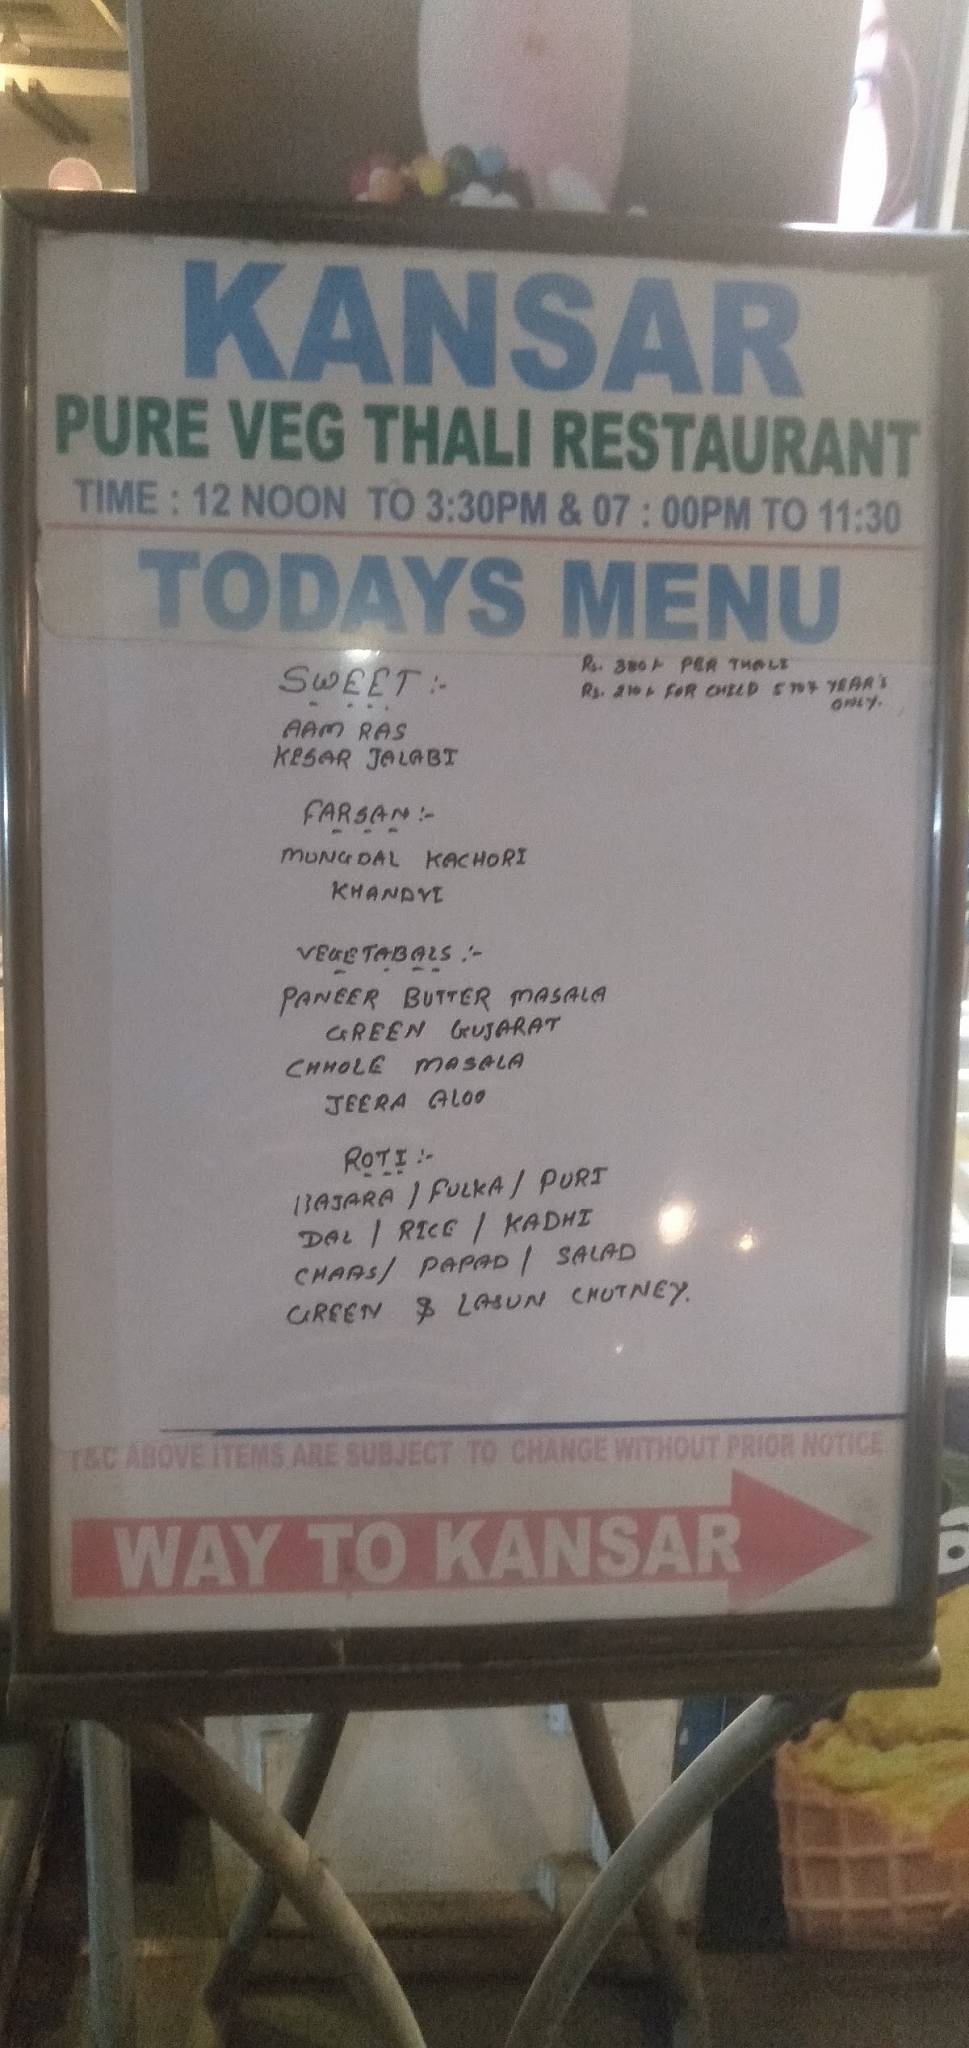 KANSAR
PURE VEG THALI RESTAURANT
TIME : 12 NOON TO 3:30PM & 07 : 00PM TO 11:30
TODAYS MENU
Rs. 380/- PER THALI
Rs. 210/- FOR CHILD 5 TO 7 YEAR'S
ONLY.
SWEET :-
AAM RAS
KESAR JALABI
FARSAN :-
MUNGDAL KACHORI
KHANDVI
VEGETABALS :-
PANEER BUTTER MASALA
GREEN GUJARAT
CHHOLE MASALA
JEERA ALOO
ROTI :-
BAJARA / FULKA / PURI
DAL / RICE / KADHI
CHAAS / PAPAD / SALAD
GREEN & LASUN CHUTNEY.
T&C ABOVE ITEMS ARE SUBJECT TO CHANGE WITHOUT PRIOR NOTICE
WAY TO KANSAR